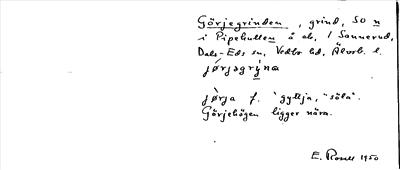 Görjegrinden, grind, SO n
i Pipehulten å äb. 1 Sannerud,
Dals-Eds sn, Vedbo hd, Älvsb. l.
jørjəgrýna
jørja f. "gyttja, "söla".
Görjehögen ligger nära.
E. Rosell 1950